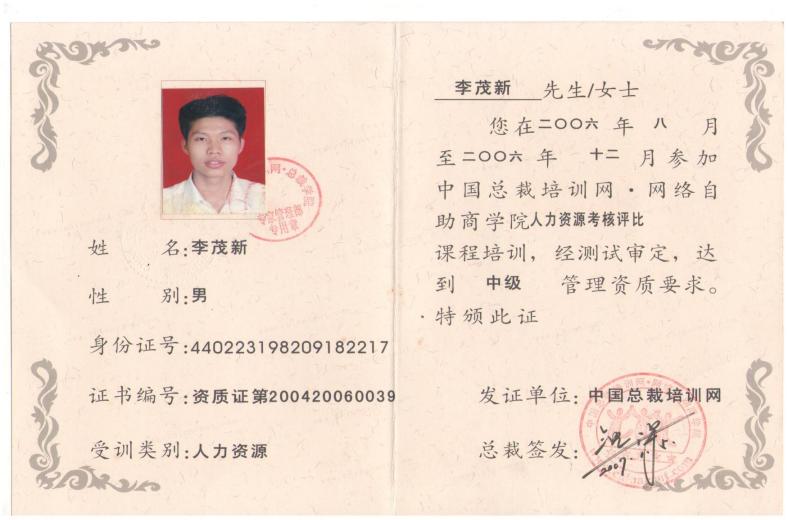 姓 名:李茂新
性 别:男
身份证号:440223198209182217
证书编号:资质证第200420060039
受训类别:人力资源
李茂新 先生/女士
您在二〇〇六年 八 月
至二〇〇六年 十二 月参加
中国总裁培训网·网络自
助商学院人力资源考核评比
课程培训，经测试审定，达
到 中级 管理资质要求。
特颁此证
发证单位:中国总裁培训网
总裁签发:
2007.
专用章